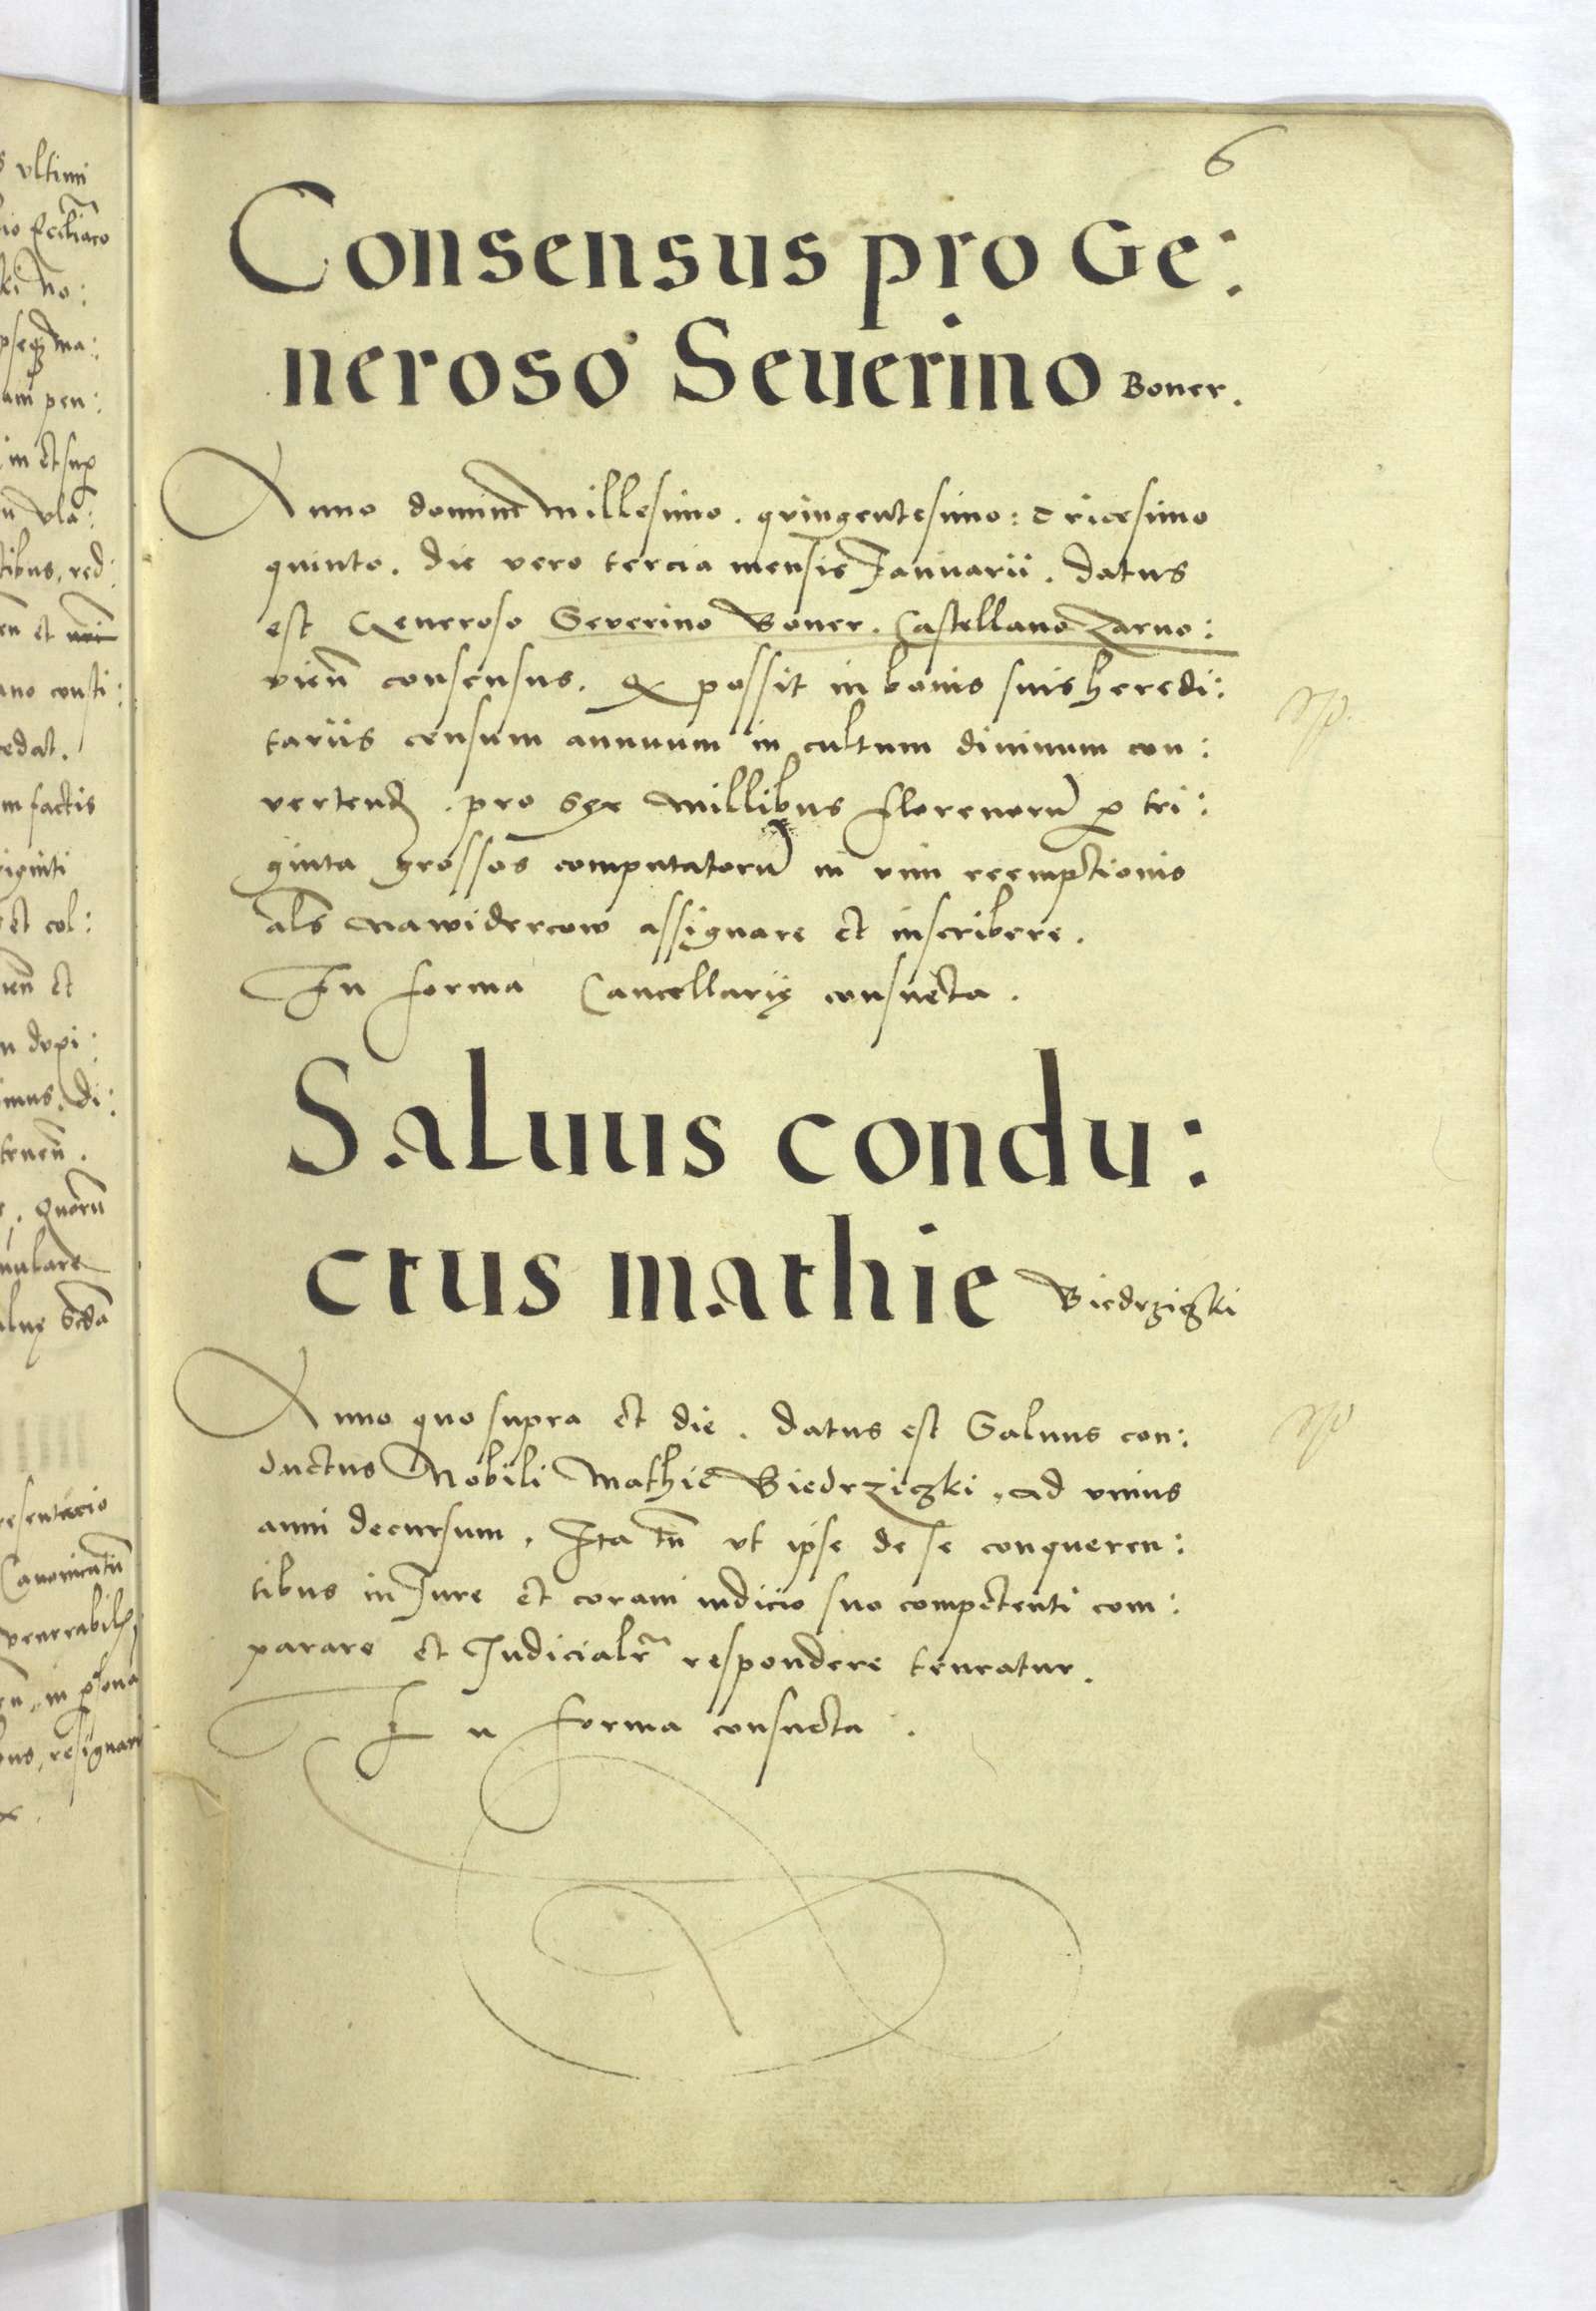 6
Consensus pro Ge:
neroso Seuerino Boner.
Anno domini Millesimo. quingentesimo: tricesimo
quinto. die vero tercia mensis Januarii. datus
est Generoso Severino Boner. Castellano Zarno:
vien̄ consensus. q possit in bonis suis heredi:
tariis censum annuum in cultum diuinum con:
vertend. pro sex Millibus florenorū p tri:
ginta grossos computatorū in vim reemptionis
als̄ nawidercow assignare et inscribere.
In forma Cancellarię consueta.
Saluus condu:
ctus mathie Biedrziczki
Anno quo supra et die. datus est Saluus con:
ductus Nobili Mathie Biedrziczki, ad vnius
anni decursum. Ita tn̄ vt ipse de se conqueren:
tibus in Jure et coram iudicio suo competenti com:
parare et Judicialr̄ respondere teneatur.
In forma consueta.
ultimi
ki no:
am pen:
in et sup
tibus, red:
ano consti:
cedat.
m factis
viginti
et col:
imus. di:
tenen̄.
. quorū
resentacio
Canonicatū
venerabil
bus, resignan